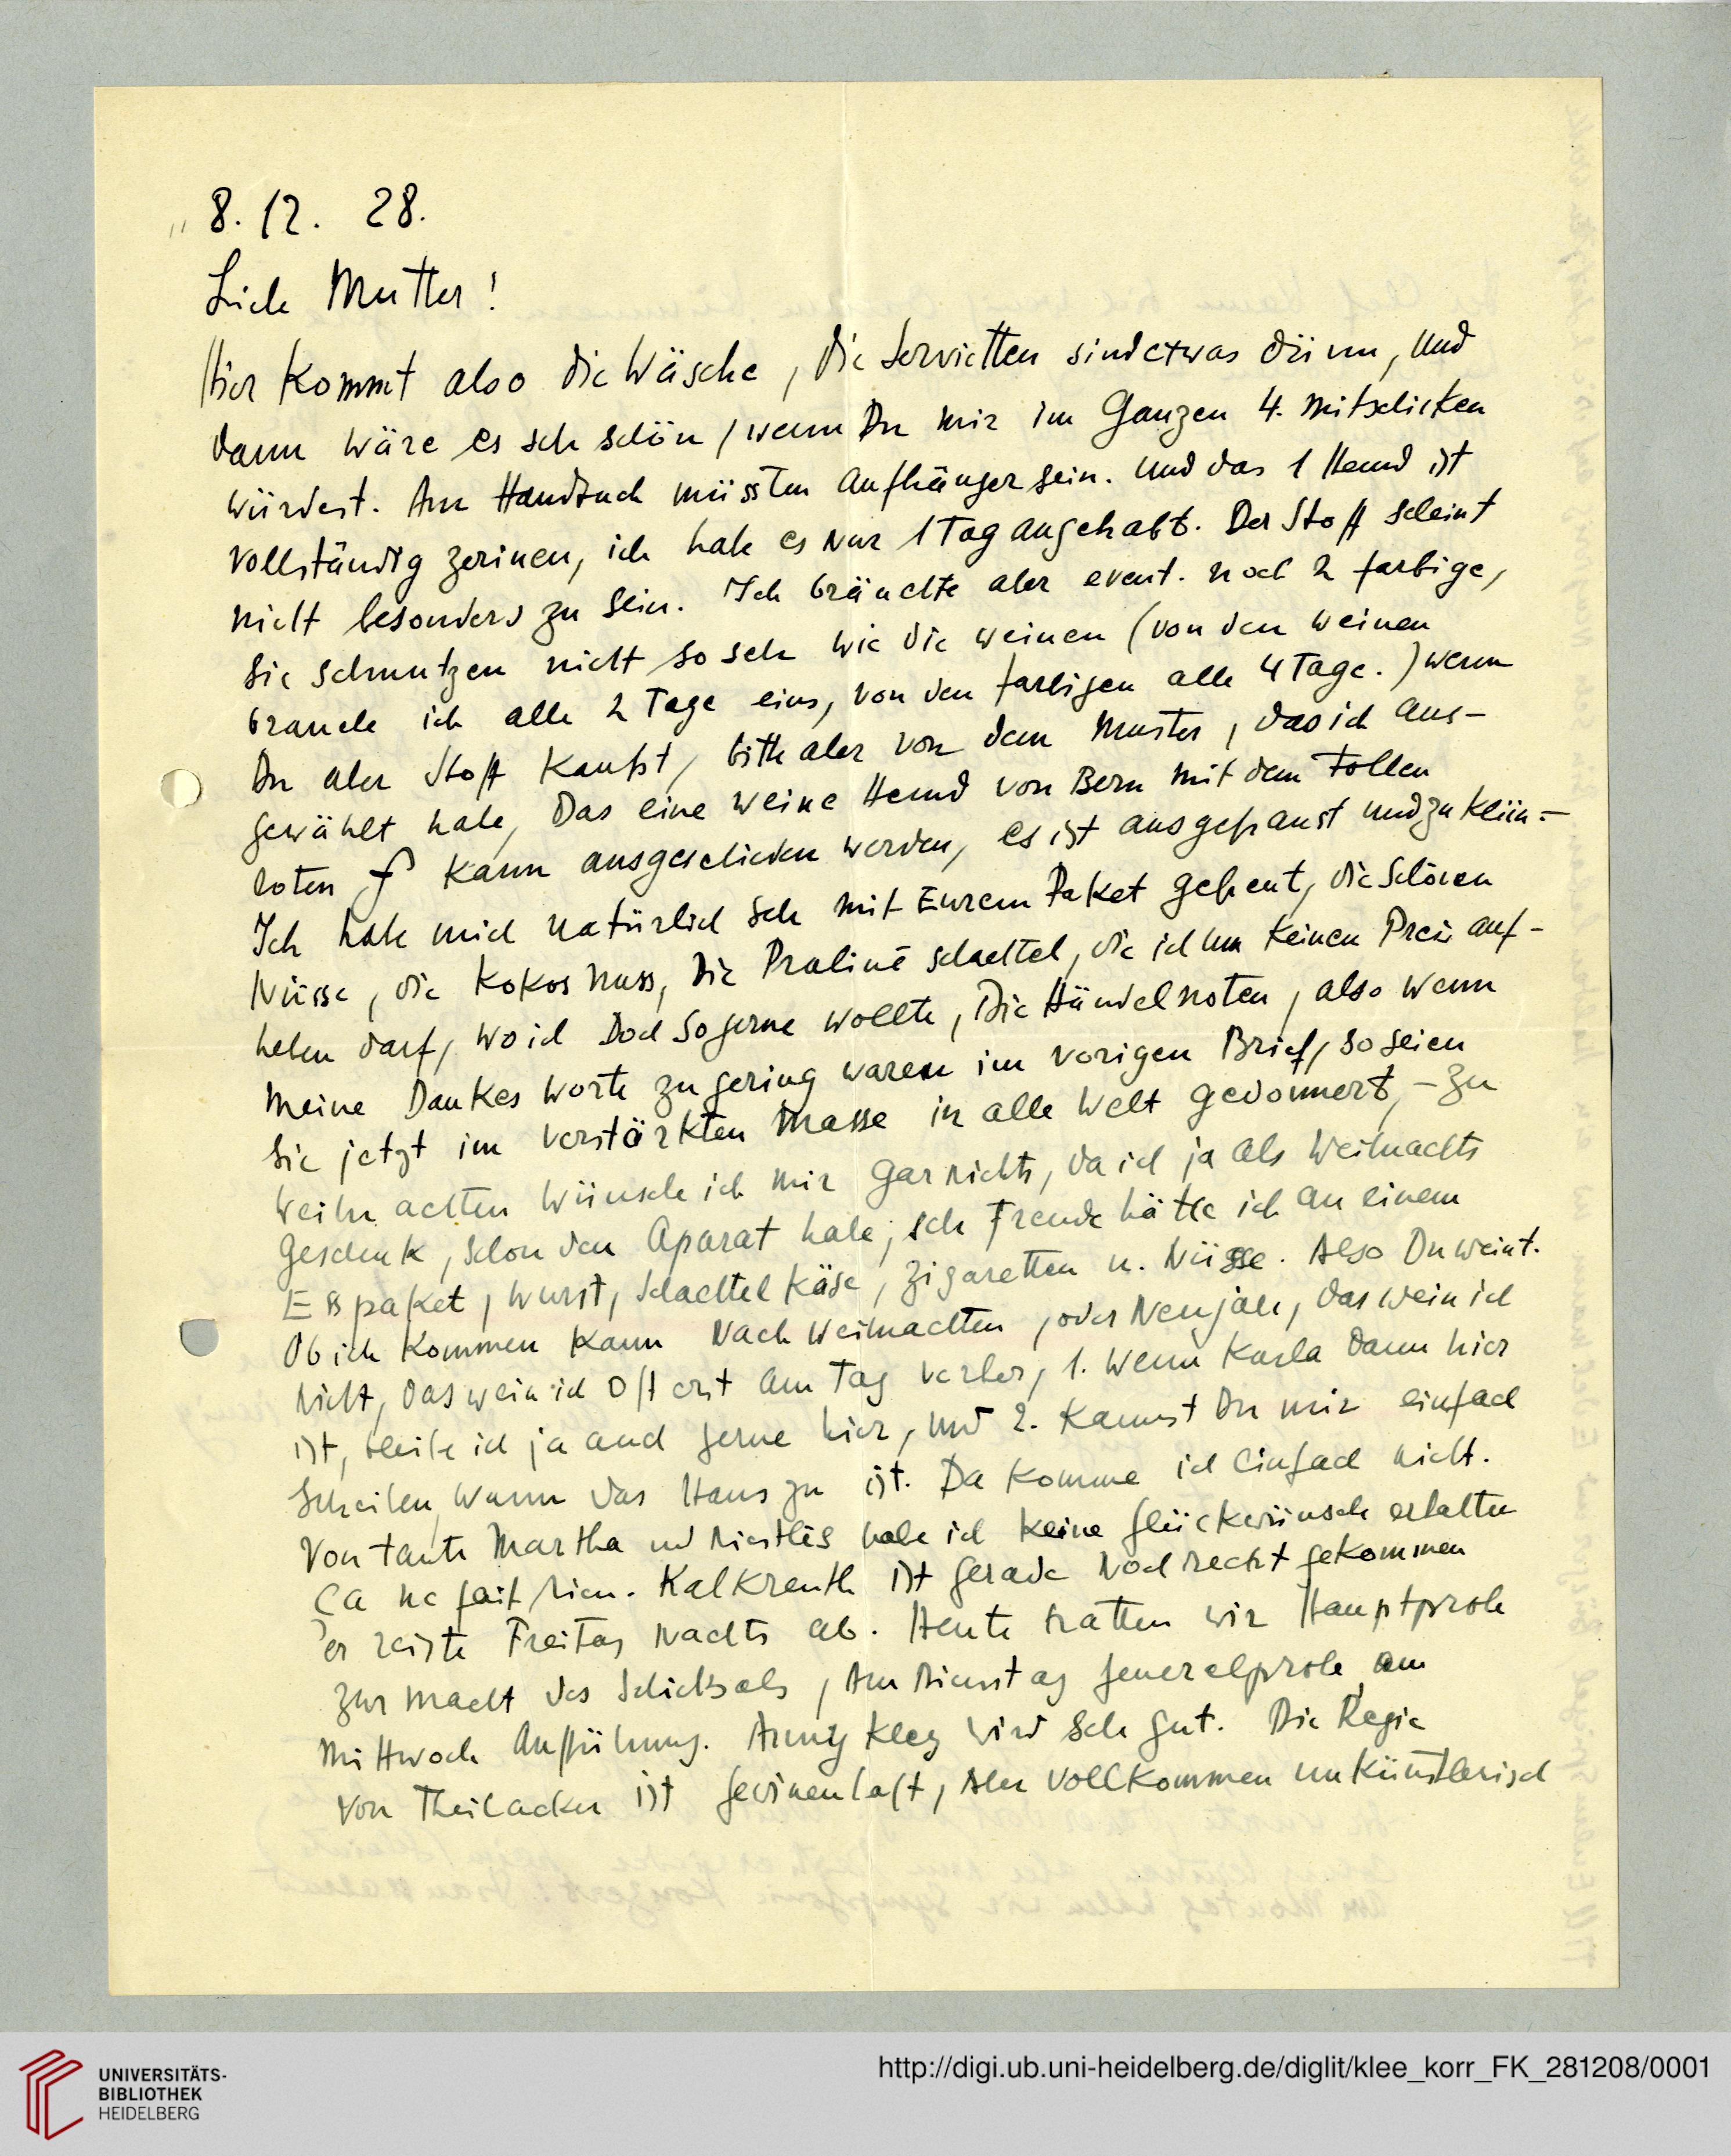 8. 12. 28.
Liebe Mutter!
Hier kommt also die Wäsche, die Servietten sind etwas dünn, und
dann wäre es sehr schön, wenn Du mir im Ganzen 4. mitschicken
würdest. Am Handtuch müssten Aufhänger sein. Und das 1 Hemd ist
vollständig zerissen, ich habe es nur 1 Tag angehabt. Der Stoff scheint
nicht besonders zu sein. Ich bräuchte aber event. noch 2 farbige,
sie schmutzen nicht so sehr wie die weissen (von den weissen
brauche ich alle 2 Tage eins, von den farbigen alle 4 Tage.) wenn
Du aber Stoff kaufst, bitte aber von dem Muster, das ich aus-
gewählt habe, Das eine weisse Hemd von Bern mit dem tollen
roten f kann ausgeschieden werden, es ist ausgefranst und zu klein-
Ich habe mich natürlich sehr mit Eurem Paket gefreut, die schönen
Nüsse, die Kokosnuss, die Praliné schachtel, die ich um keinen Preis auf-
heben darf, wo ich doch so gerne wollte, Die Händelnoten, also wenn
meine Dankes worte zu gering waren im vorigen Brief, so seien
sie jetzt im verstärkten Masse in alle Welt gedonnert, - Zu
Weihnachten wünsche ich mir garnichts, da ich ja als Weihnachts
geschenk, schon den Aparat habe, sehr Freude hätte ich an einem
Esspaket, Wurst, Schachtelkäse, Zigaretten u. Nüsse. Also Du weisst.
Ob ich kommen kann nach Weihnachten, oder Neujahr, das weiss ich
nicht, das weiss ich oft erst am Tag vorher, 1. wenn Karla dann hier
ist, bleibe ich ja auch gerne hier, und 2. kannst Du mir einfach
schreiben, wann das Haus zu ist. Da komme ich einfach nicht.
Von tante Martha und Niestlés habe ich keine Glückwünsche erhalten
Ça ne fait rien. Kalkreuth ist gerade noch recht gekommen
er reiste Freitag Nachts ab. Heute hatten wir Hauptprobe
zur Macht des Schicksals, Am Dienstag Generalprobe, am
Mittwoch Aufführung. Anny Kley wird sehr gut. Die Regie
von Theilacker ist gewissenhaft, aber vollkommen unkünstlerisch
UNIVERSITÄTS-
BIBLIOTHEK
HEIDELBERG
http://digi.ub.uni-heidelberg.de/diglit/klee_korr_FK_281208/0001